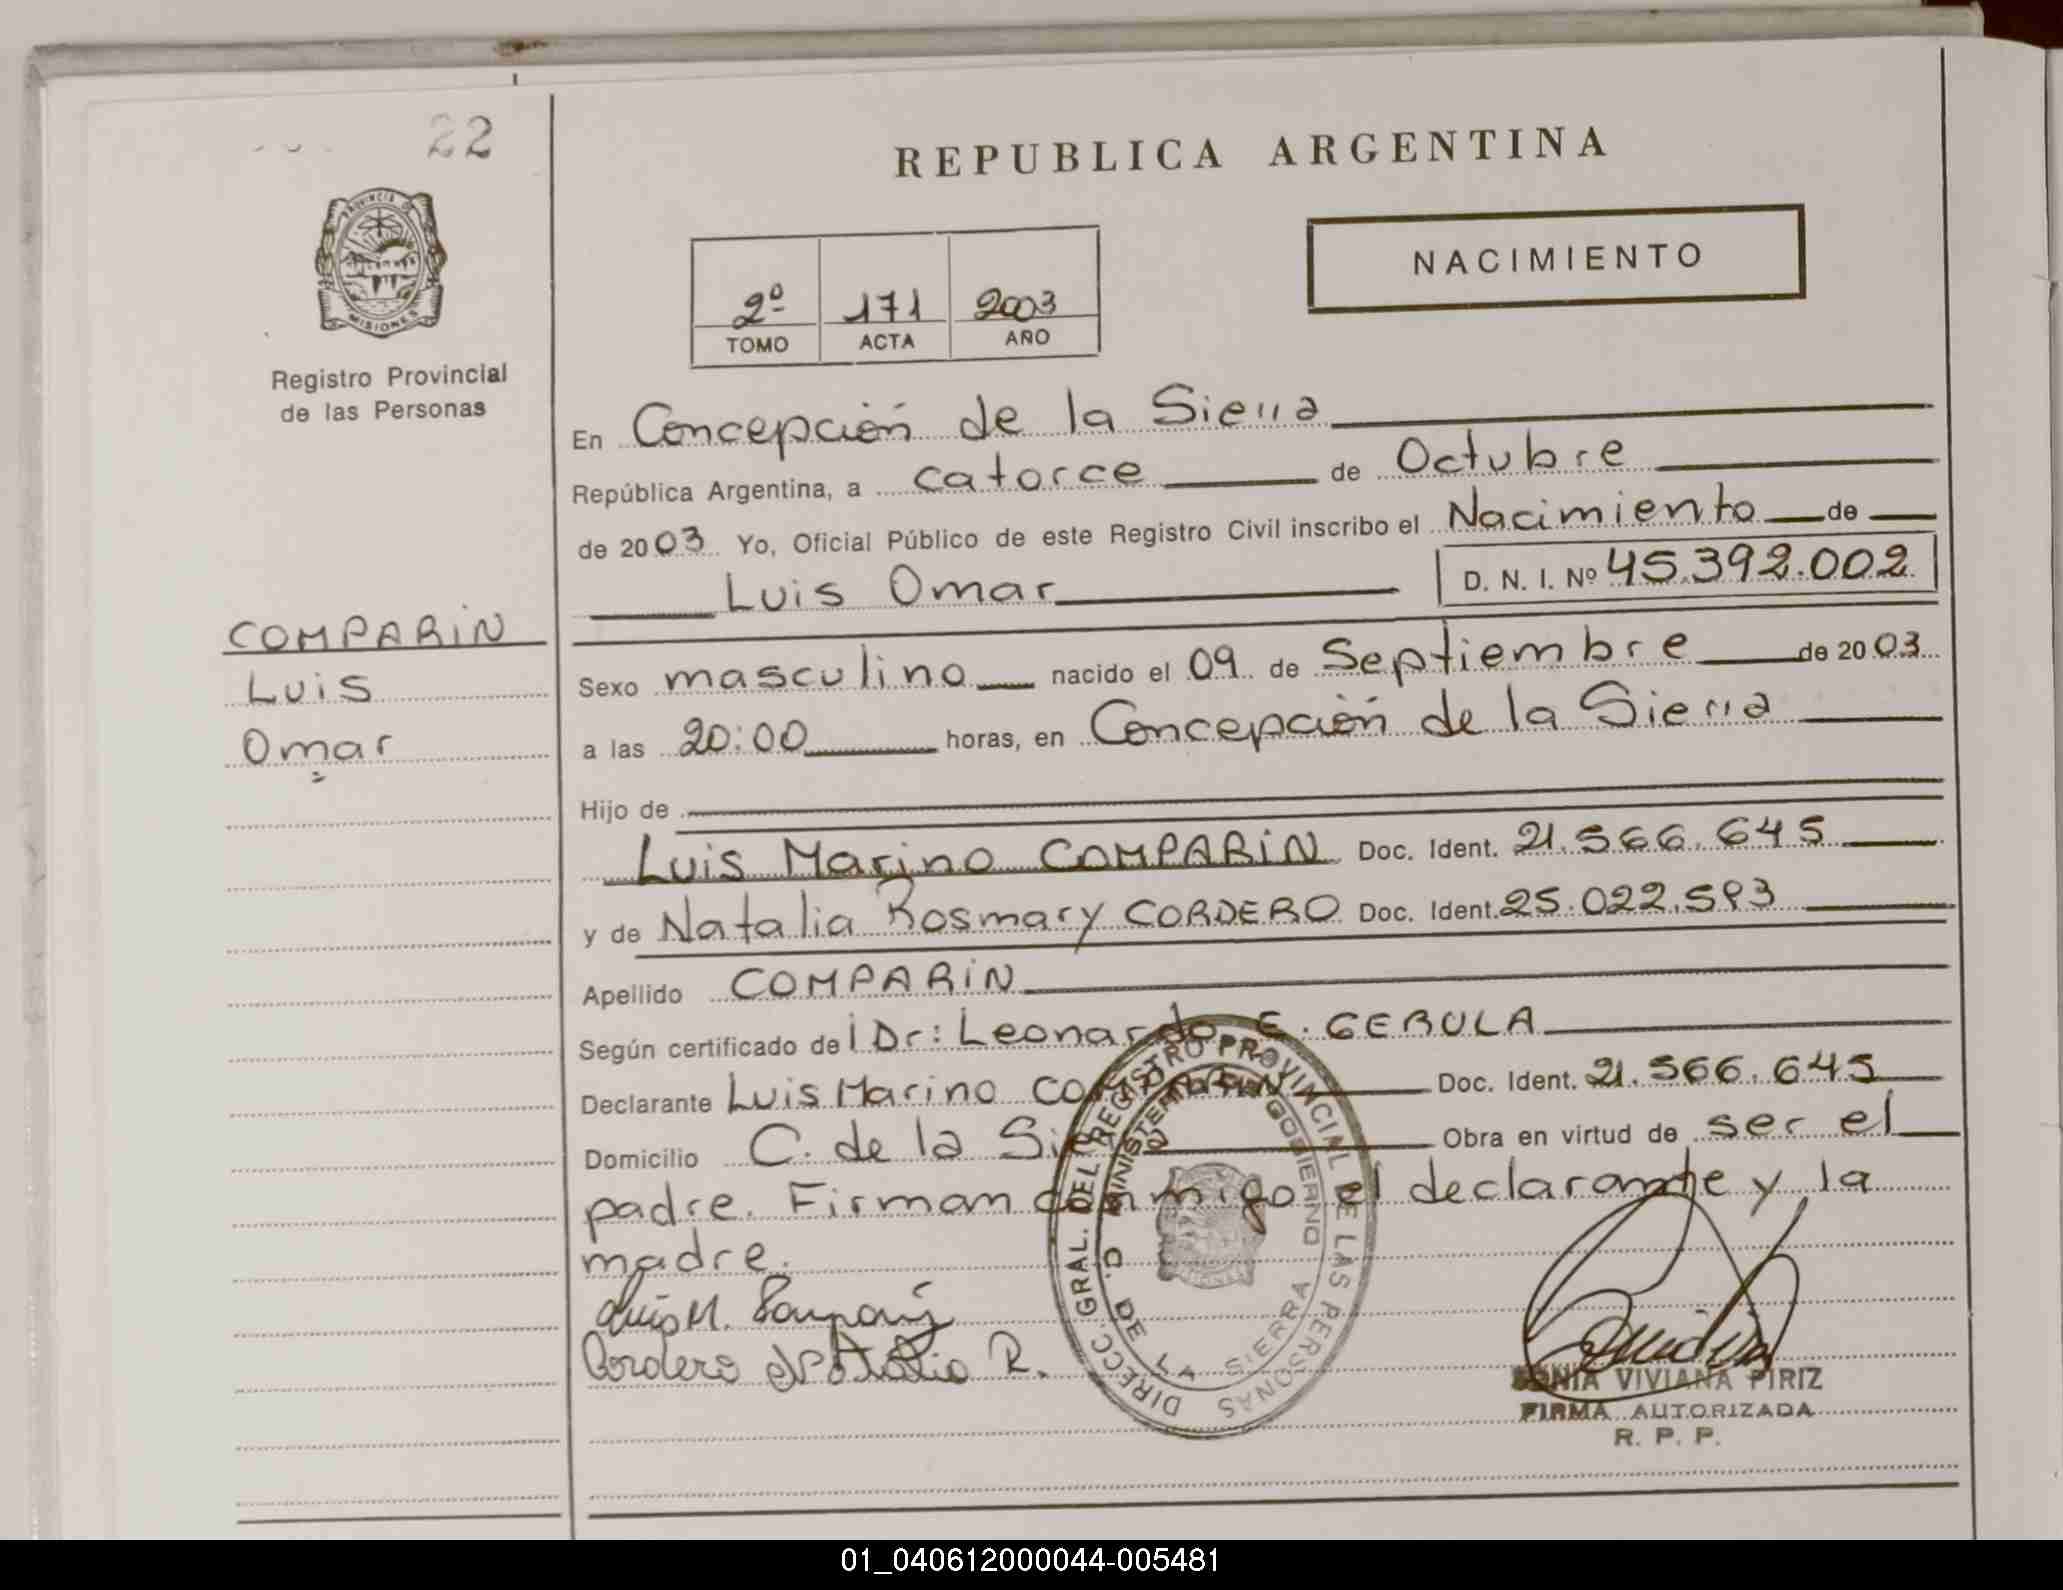 22
PROVINCIA DE
MISIONES
Registro Provincial
de las Personas
COMPARIN
Luis
Omar
REPUBLICA ARGENTINA
NACIMIENTO
2º 171 2003
TOMO ACTA AÑO
En Concepción de la Sierra
República Argentina, a catorce de Octubre
de 2003 Yo, Oficial Público de este Registro Civil inscribo el Nacimiento de
Luis Omar D. N. I. Nº 45.392.002
Sexo masculino nacido el 09 de Septiembre de 2003
a las 20:00 horas, en Concepción de la Sierra
Hijo de
Luis Marino COMPARIN Doc. Ident. 21.566.645
y de Natalia Rosmary CORDERO Doc. Ident. 25.022.593
Apellido COMPARIN
Según certificado del Dr: Leonardo E. CEBULA
Declarante Luis Marino COMPARIN Doc. Ident. 21.566.645
Domicilio C. de la Sierra Obra en virtud de ser el
padre. Firman conmigo el declarante y la
madre.
Luis M. Comparin
Cordero Natalia R.
DIRECC. GRAL. DEL REGISTRO PROVINCIAL DE LAS PERSONAS
MINISTERIO GOBIERNO
C. DE LA SIERRA
SONIA VIVIANA PIRIZ
FIRMA AUTORIZADA
R. P. P.
01_040612000044-005481